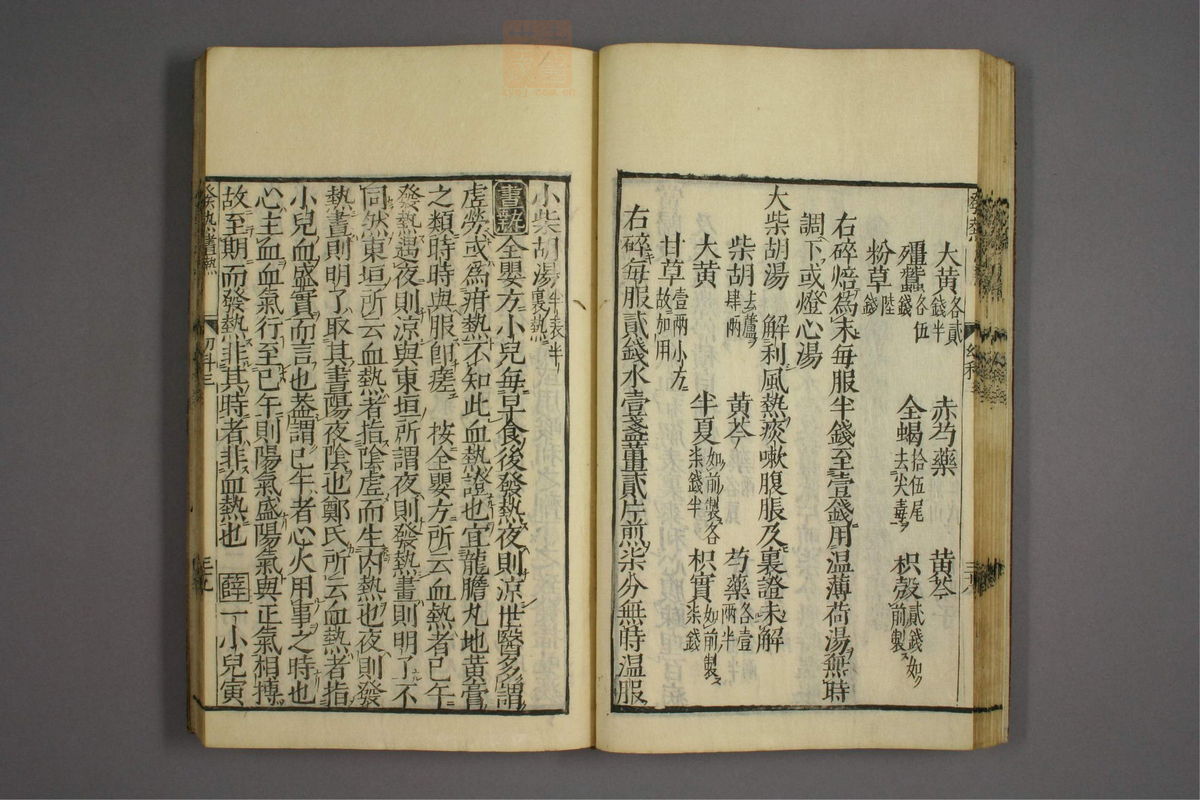 大黃各貳錢半　赤芍藥　黃芩
殭蠶各伍錢　全蝎拾伍尾去尖毒　枳殼貳錢如前製
粉草陸錢
右碎焙為末每服半錢至壹錢用温薄荷湯無時
調下或燈心湯
大柴胡湯　解利風熱痰嗽腹脹及裏證未解
柴胡去蘆肆兩　黃芩　芍藥各壹兩半
大黃　半夏如前製各柒錢半　枳實如前製柒錢
甘草壹兩小方故如用
右碎每服貳錢水壹盞薑貳片煎柒分無時温服
小柴胡湯半表半裏熱
晝熱全嬰方小兒每早食後發熱夜則涼世醫多謂
虚勞或為疳熱不知此血熱證也宜龍膽丸地黃膏
之類時時與服即瘥　按全嬰方所云血熱者巳午
發熱遇夜則涼與東垣所謂夜則發熱晝則明了不
同然東垣所云血熱者指陰虚而生内熱也夜則發
熱晝則明了取其晝陽夜陰也鄭氏所云血熱者指
小兒血盛實而言也蓋謂巳午者心火用事之時也
心主血血氣行至巳午則陽氣盛陽氣與正氣相搏
故至期而發熱非其時者非血熱也　薛一小兒寅
發熱晝熱